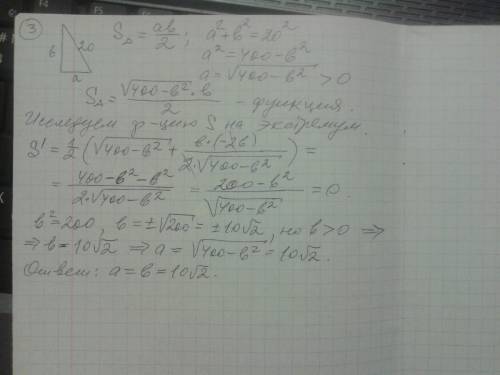 ③ S_Δ = ab/2 ; a² + b² = 20²
b 20 a
a² = 400 - b²
a = √(400 - b²) > 0
S_Δ = (√(400 - b²) · b)/2 - функция.
Исследуем ф-цию S на экстремум.
S' = 1/2 (√(400 - b²) + b·(-2b)/(2·√(400 - b²))) =
= (400 - b² - b²)/(2·√(400 - b²)) = (200 - b²)/√(400 - b²) = 0.
b² = 200, b = ±√200 = ±10√2, но b > 0 ⇒
⇒ b = 10√2 ⇒ a = √(400 - b²) = 10√2.
Ответ: a = b = 10√2.